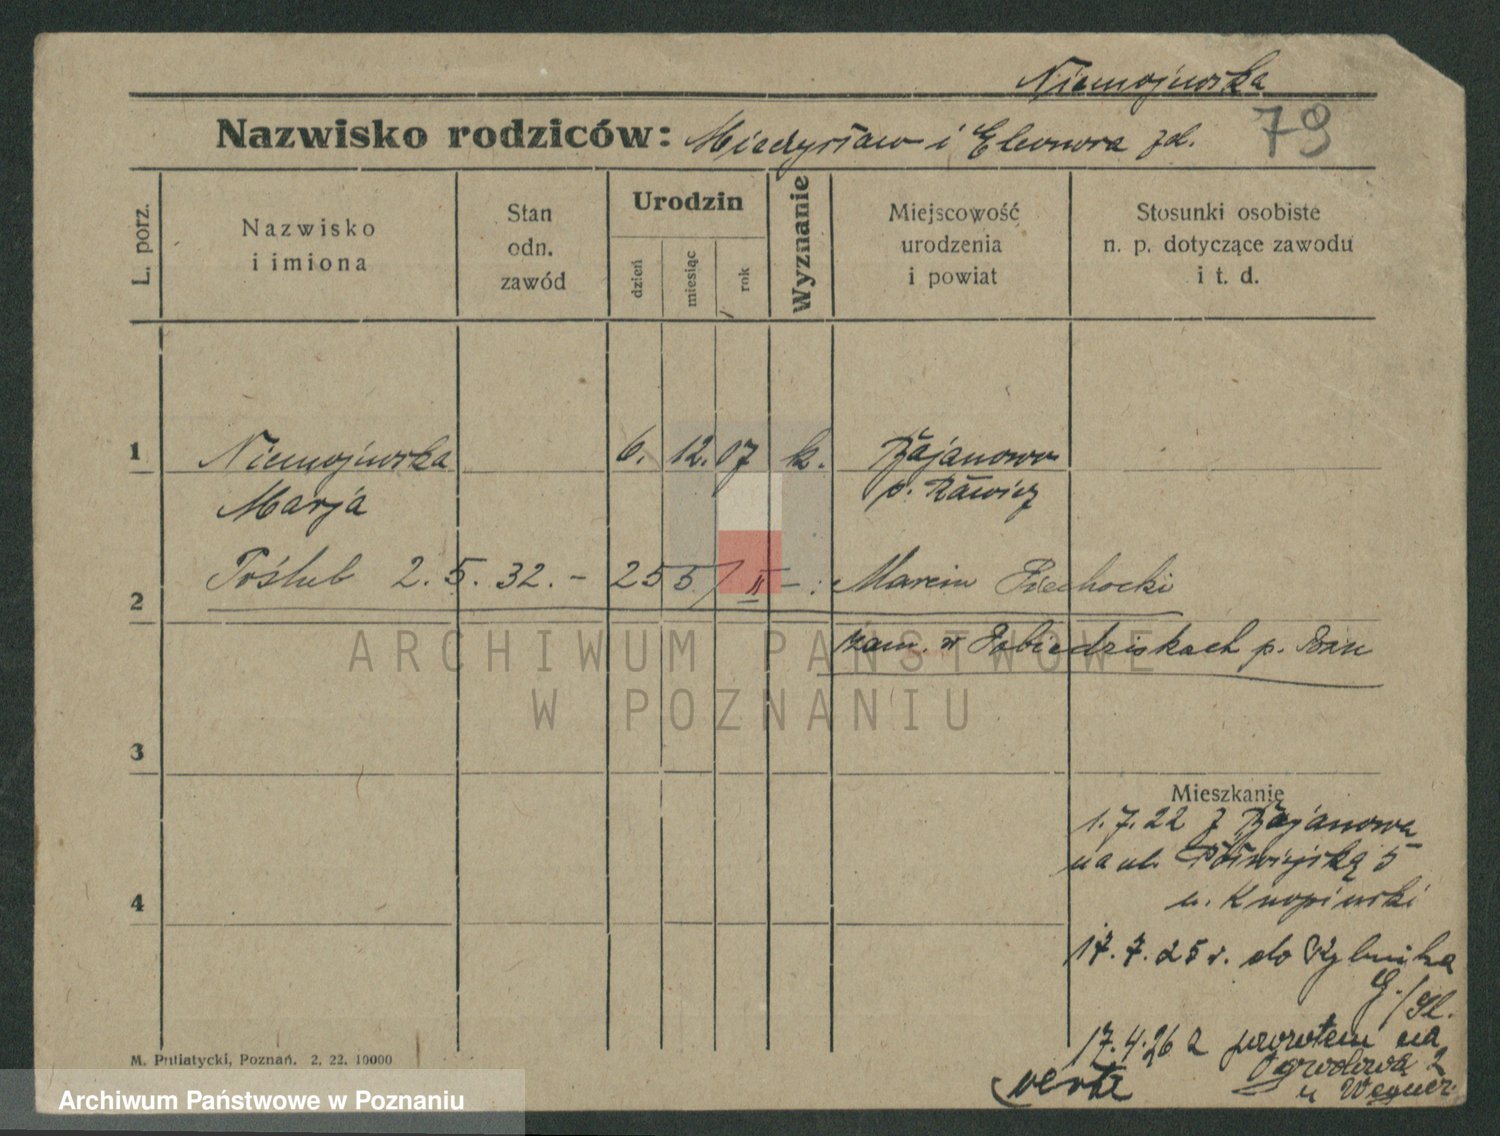 Niemojewska
Nazwisko rodziców: Mieczysław i Eleonora zd. 79
L. porz.
Nazwisko
i imiona
Stan
odn.
zawód
Urodzin
dzień
miesiąc
rok
Wyznanie
Miejscowość
urodzenia
i powiat
Stosunki osobiste
n. p. dotyczące zawodu
i t. d.
1
Niemojewska 6. 12. 07 k.
Marja p. Rawicz
2
Poślub 2. 5. 32. - 255/II - : Marcin Piechocki
zam. w Pobiedziskach p.
ARCHIWUM PAŃSTWOWE
W POZNANIU
3
Mieszkanie
1. 7. 22 z
na ul. 5
4
u. Knopinski
17. 7. 25 r. do Rybnika
G./Śl.
17. 4. 26 z powrotem na
Ogrodową 2
u Wegner
verte
M. Putiatycki, Poznań. 2. 22. 10000
Archiwum Państwowe w Poznaniu